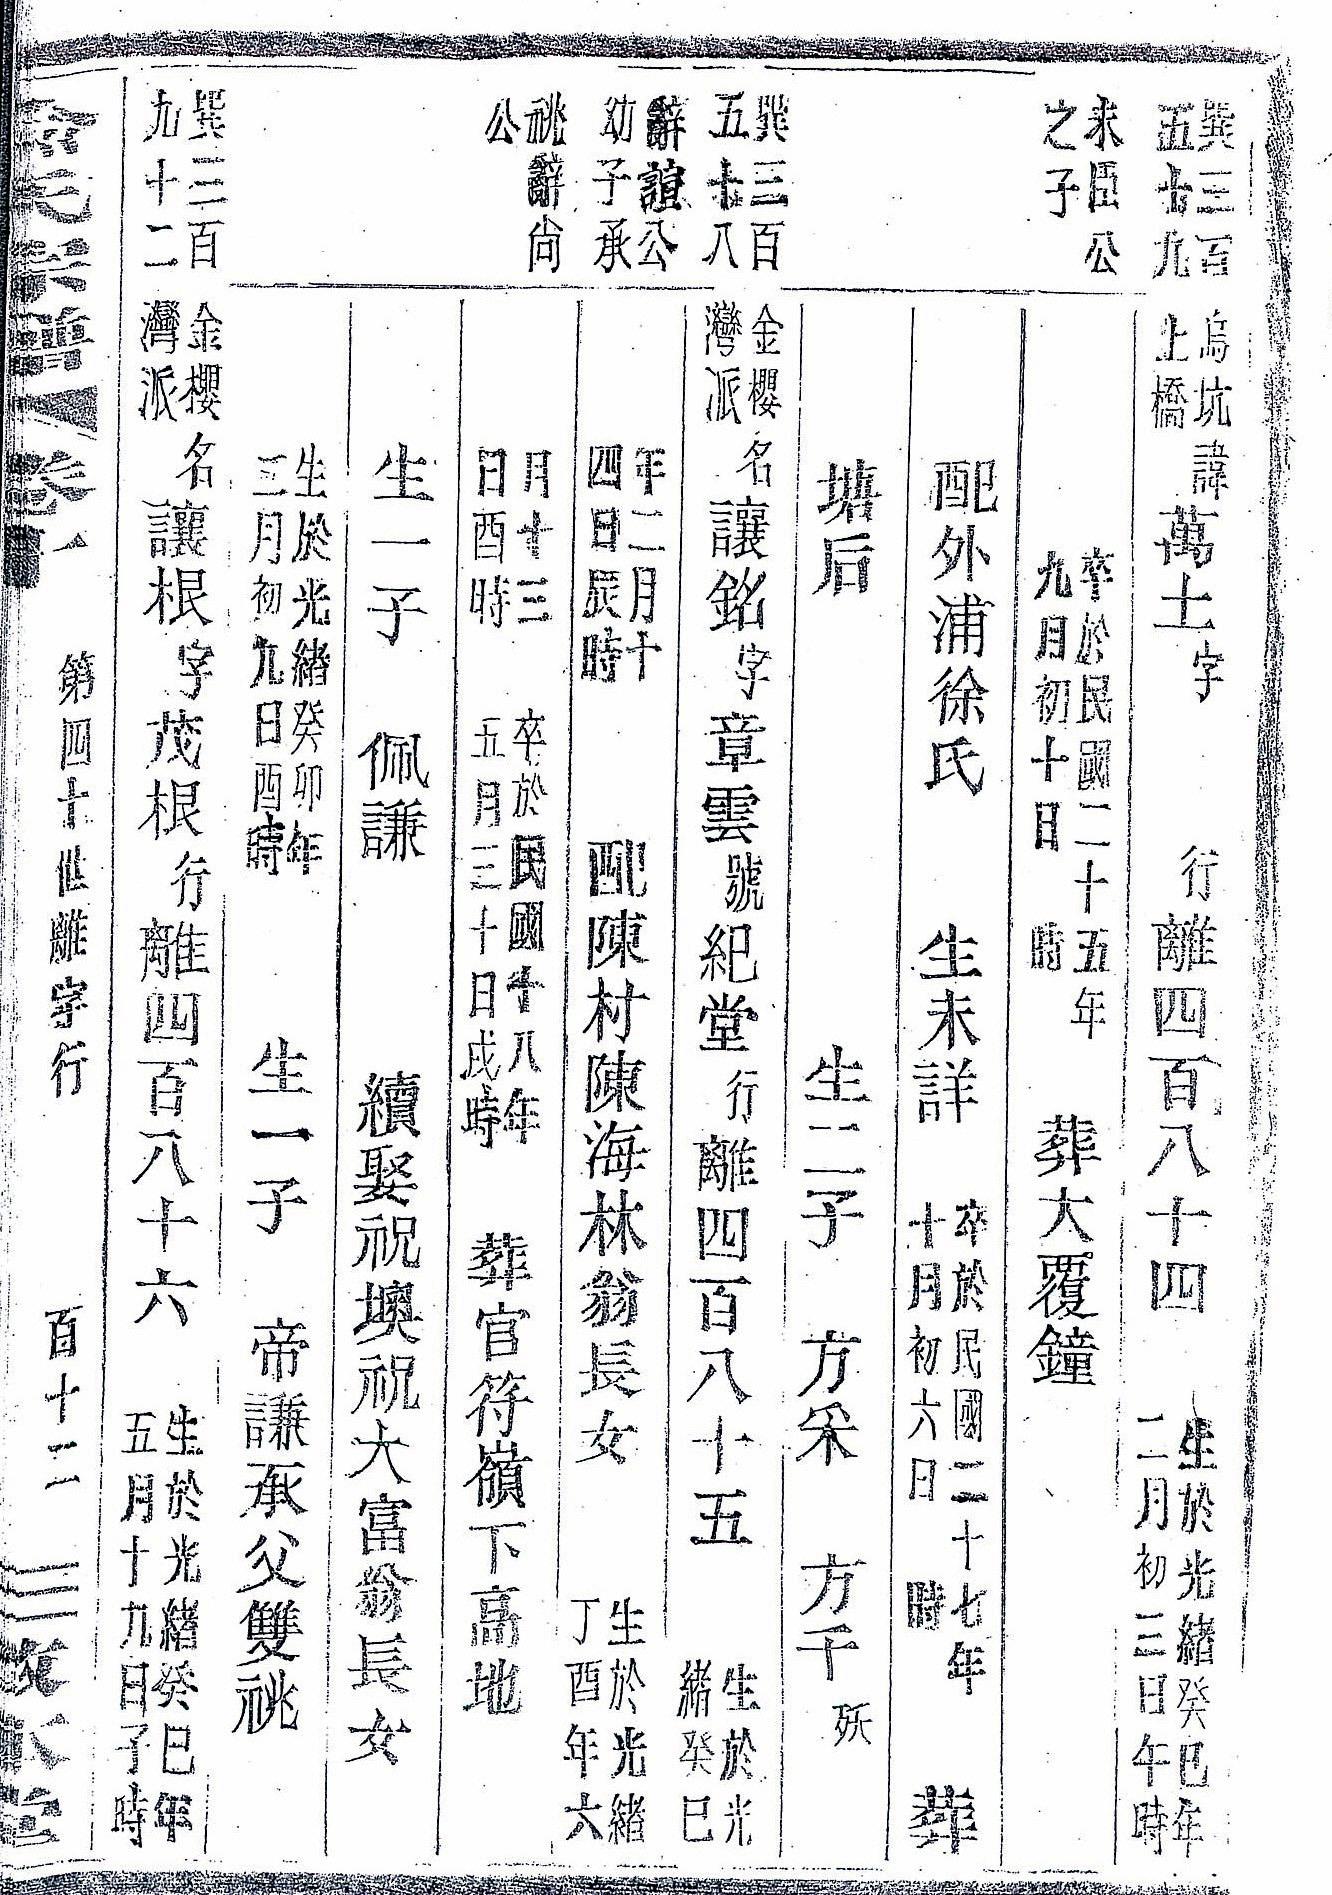 巽三百
五十九
烏坑
上橋
諱萬土字　行離四百八十四
生於光緒癸巳年
二月初三日午時
來臣公
之子
卒於民國二十五年
九月初十日　時
葬大覆鐘
配外浦徐氏　生未詳
卒於民國二十七年
十月初六日　時
葬
塘后　生二子　方釆　方千殀
巽三百
五十八
金櫻
灣派
名讓銘字章雲號紀堂行離四百八十五
生於光
緒癸巳
辭誼公
幼子承
年二月十
四日辰時
配陳村陳海林翁長女
生於光緒
丁酉年六
祧辭尚
公
月十三
日酉時
卒於民國十八年
五月三十日戌時
葬官符嶺下高地
生一子　佩謙　續娶祝墺祝大富翁長女
生於光緒癸卯年
三月初九日酉時
生一子　帝謙承父雙祧
巽三百
九十二
金櫻
灣派
名讓根字茂根行離四百八十六
生於光緒癸巳年
五月十九日子時
氏宗譜　卷一　第四十世離字行　百十二